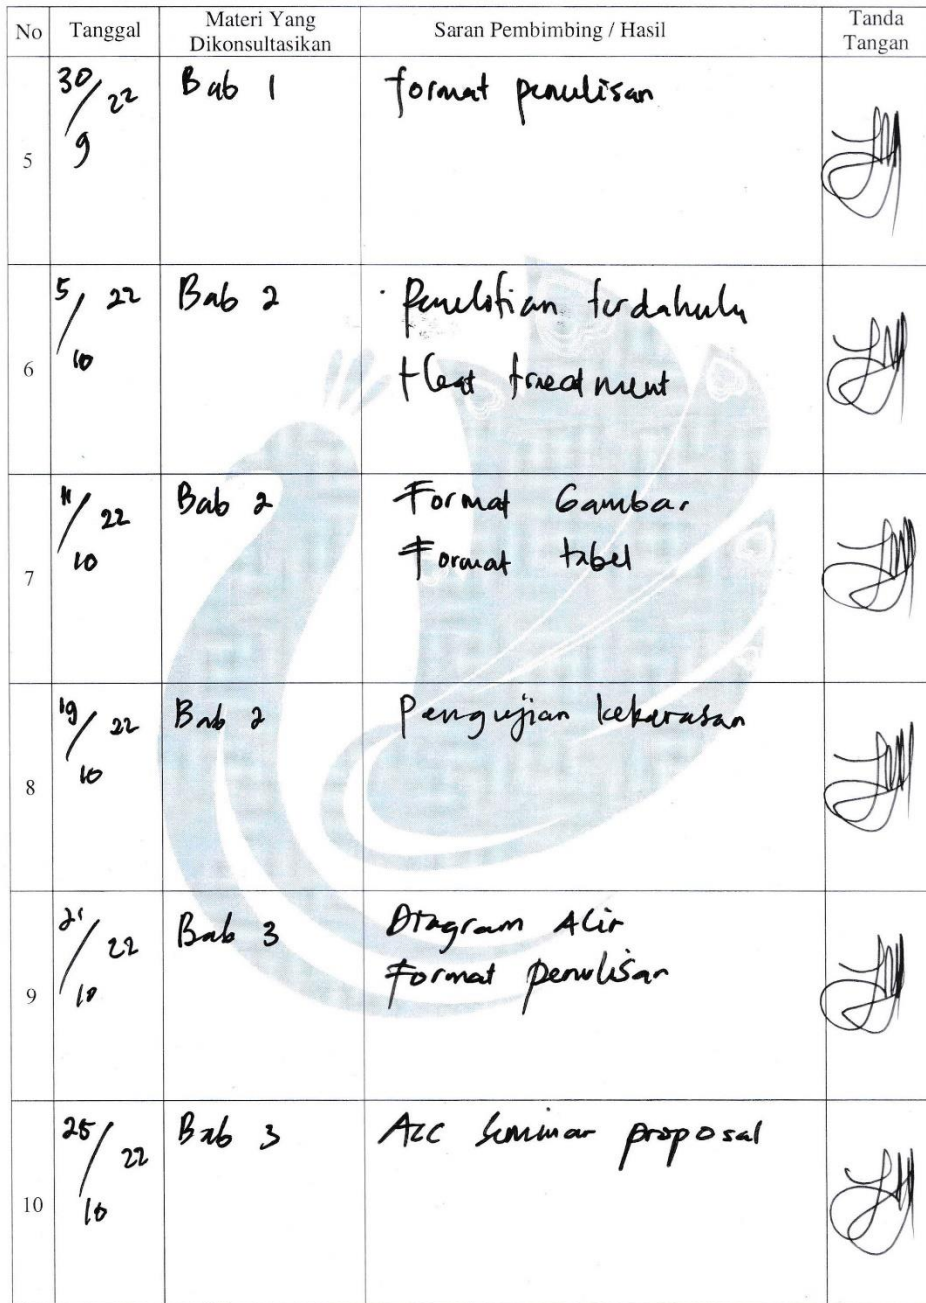 No Tanggal Materi Yang Dikonsultasikan Saran Pembimbing / Hasil Tanda Tangan
5 30/9 22 Bab 1 format penulisan
6 5/10 22 Bab 2 · Penelitian terdahulu
Heat treatment
7 11/10 22 Bab 2 Format Gambar
Format tabel
8 19/10 22 Bab 2 Pengujian kekerasan
9 21/10 22 Bab 3 Diagram Alir
Format penulisan
10 25/10 22 Bab 3 Acc Seminar proposal